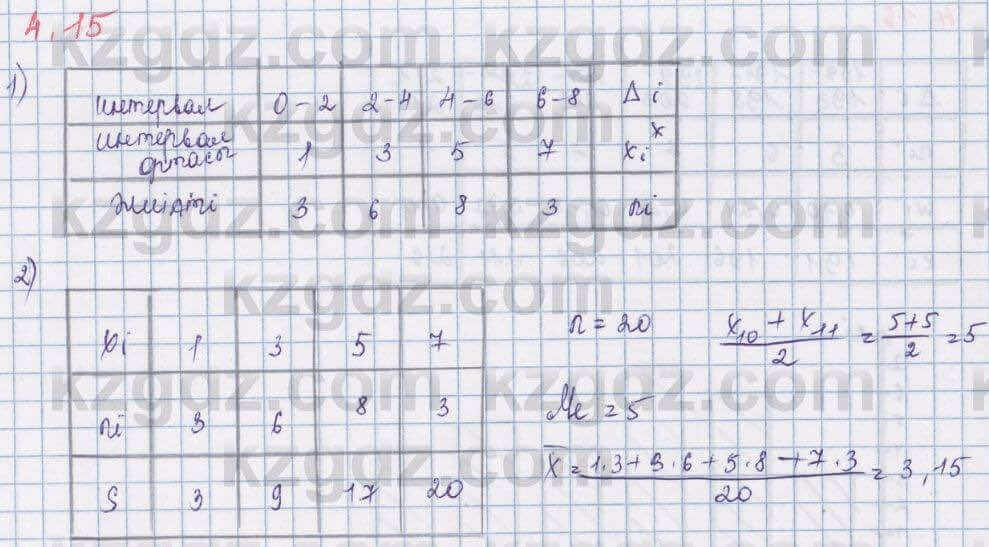 4.15
1)
интервал 0-2 2-4 4-6 6-8 Δi
интервал ортасы 1 3 5 7 xi*
жиілігі 3 6 8 3 ni
2)
xi 1 3 5 7
ni 3 6 8 3
S 3 9 17 20
n = 20 (x10 + x11)/2 = (5+5)/2 = 5
Me = 5
x̄ = (1·3+3·6+5·8+7·3)/20 = 3,15
kzgdz.com